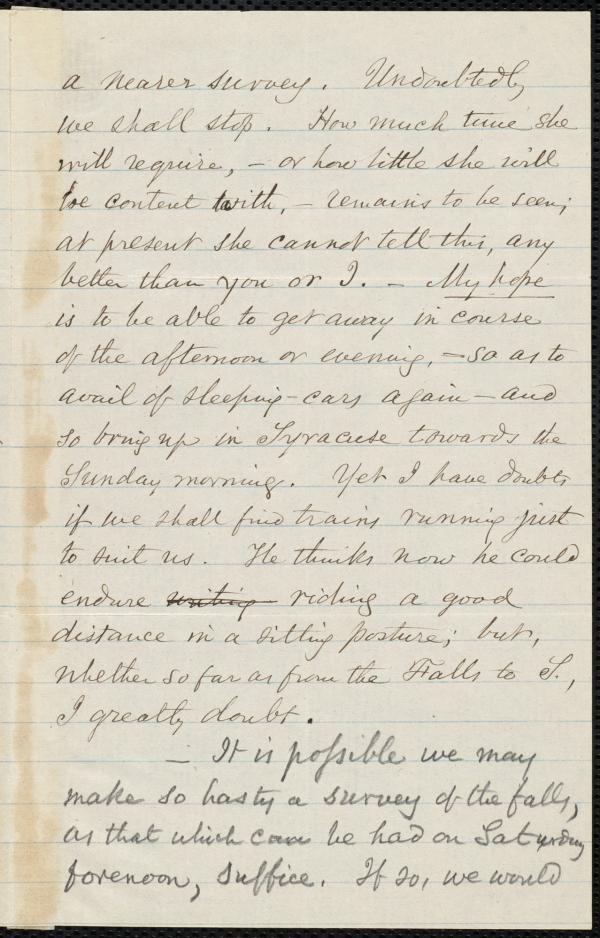 a nearer survey. Undoubtedly
we shall stop. How much time she
will require, – or how little she will
be content with, – remains to be seen;
at present she cannot tell this, any
better than you or I. – My hope
is to be able to get away in course
of the afternoon or evening, – so as to
avail of sleeping-cars again – and
so bring up in Syracuse towards the
Sunday morning. Yet I have doubts
if we shall find trains running just
to suit us. He thinks now he could
endure writing riding a good
distance in a sitting posture; but,
whether so far as from the Falls to S.,
I greatly doubt.
– It is possible we may
make so hasty a survey of the falls,
as that which can be had on Saturday
forenoon, suffice. If so, we would